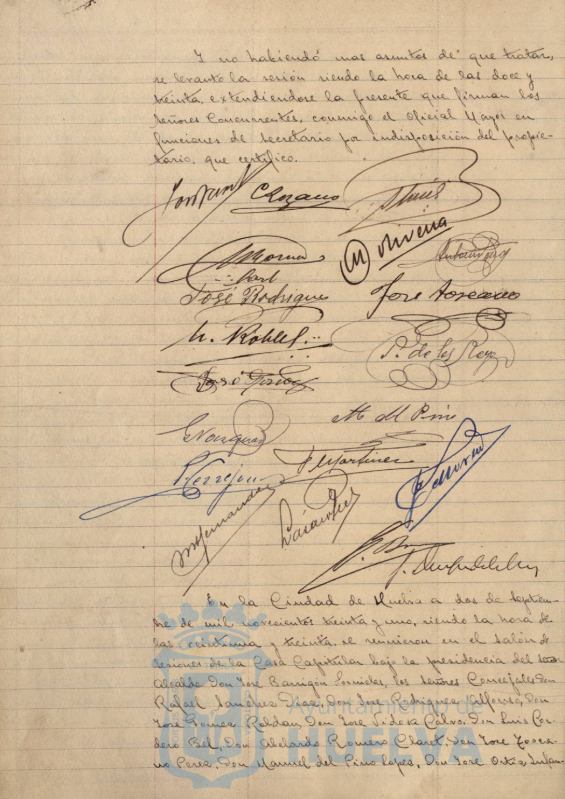 Y no habiendo mas asuntos de que tratar,
se levantó la sesión siendo la hora de las doce y
treinta, extendiendose la presente que firman los
señores Concurrentes, conmigo el Oficial Mayor en
funciones de Secretario por indisposición del propie-
tario, que certifico.
C Lozano
M Oliveira
José Rodriguez
Jose Toscano
M. Robles
P. de los Reyes
M del Pino
P. Terrejon
F Martinez
M Hernandez
En la Ciudad de Huelva a dos de Septiem-
bre de mil novecientos treinta y uno, siendo la hora de
las veintiuna y treinta, se reunieron en el salón de
sesiones de la Casa Capitular bajo la presidencia del Señor
Alcalde Don José Barrigón Fornieles, los señores Concejales Don
Rafael Sanchez Diaz, Don José Rodriguez Alfonso, Don
José Gomez Roldan, Don José Tidera Calvo, Don Luis Cor-
dero Bel, Don Abelardo Romero Claret, Don José Tosca-
no Perez, Don Manuel del Pino Lopez, Don José Ortiz Infan-
Ayuntamiento de
HUELVA